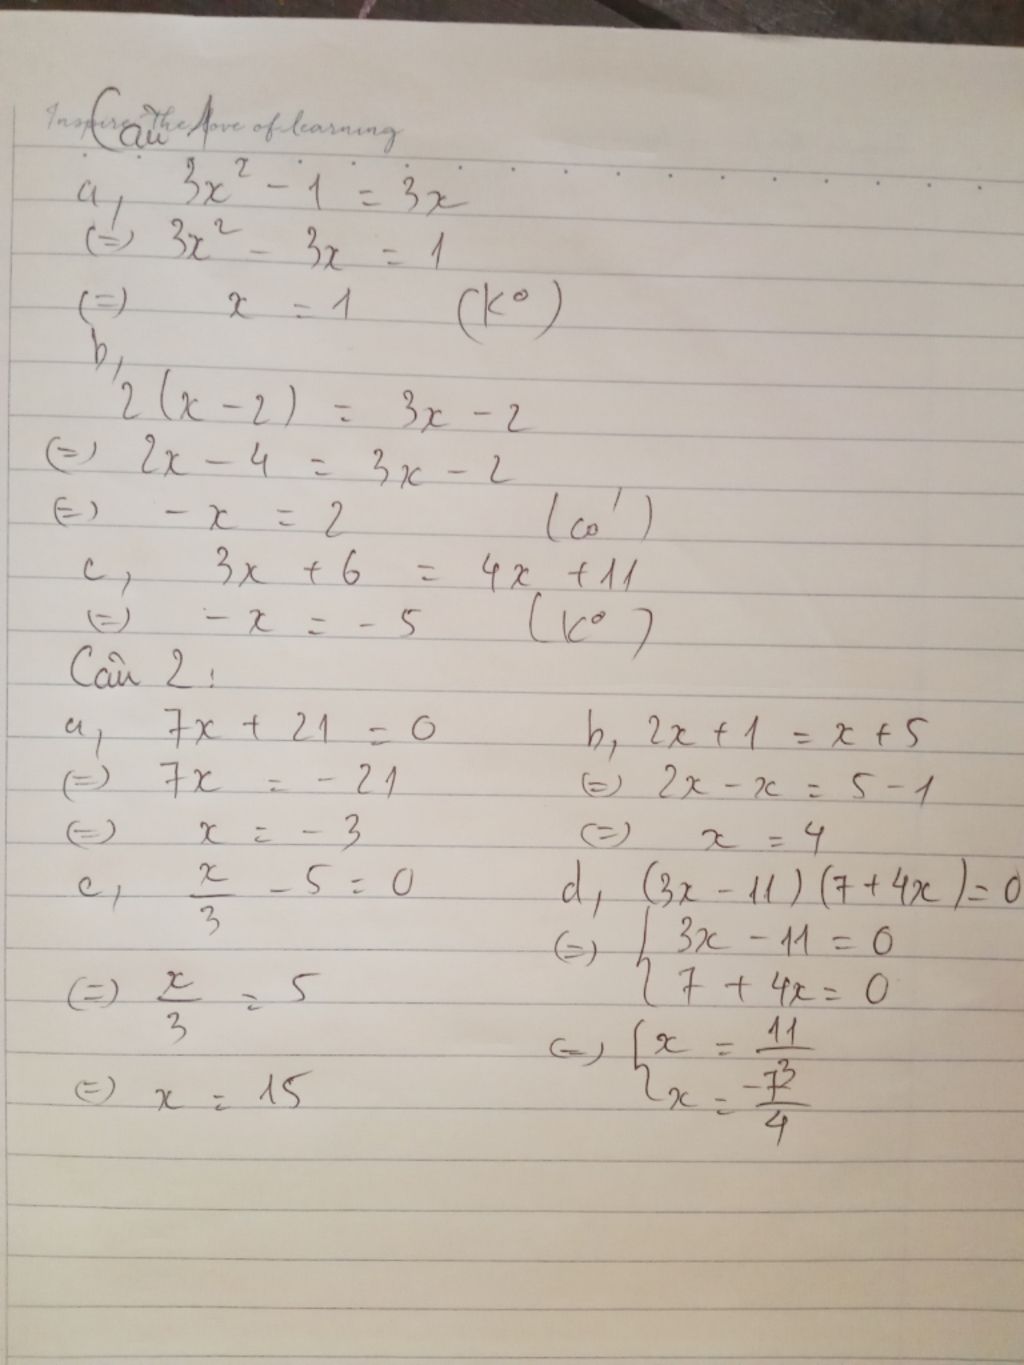 Inspire the love of learning
Câu 1
a, 3x² - 1 = 3x
(=) 3x² - 3x = 1
(=) x = 1 (K°)
b,
2(x - 2) = 3x - 2
(=) 2x - 4 = 3x - 2
(=) - x = 2 (có)
c, 3x + 6 = 4x + 11
(=) - x = - 5 (K°)
Câu 2:
a, 7x + 21 = 0
(=) 7x = - 21
(=) x = - 3
b, 2x + 1 = x + 5
(=) 2x - x = 5 - 1
(=) x = 4
c, x/3 - 5 = 0
(=) x/3 = 5
(=) x = 15
d, (3x - 11)(7 + 4x) = 0
(=) { 3x - 11 = 0
7 + 4x = 0
(=) { x = 11/3
x = -7/4